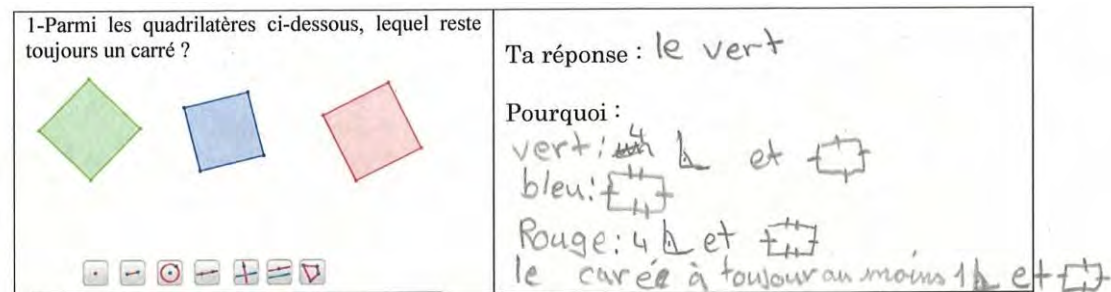 1-Parmi les quadrilatères ci-dessous, lequel reste
toujours un carré ?
Ta réponse : le vert
Pourquoi :
vert: 4 et
bleu:
Rouge: 4 et
le carée à toujour au moins 1 et